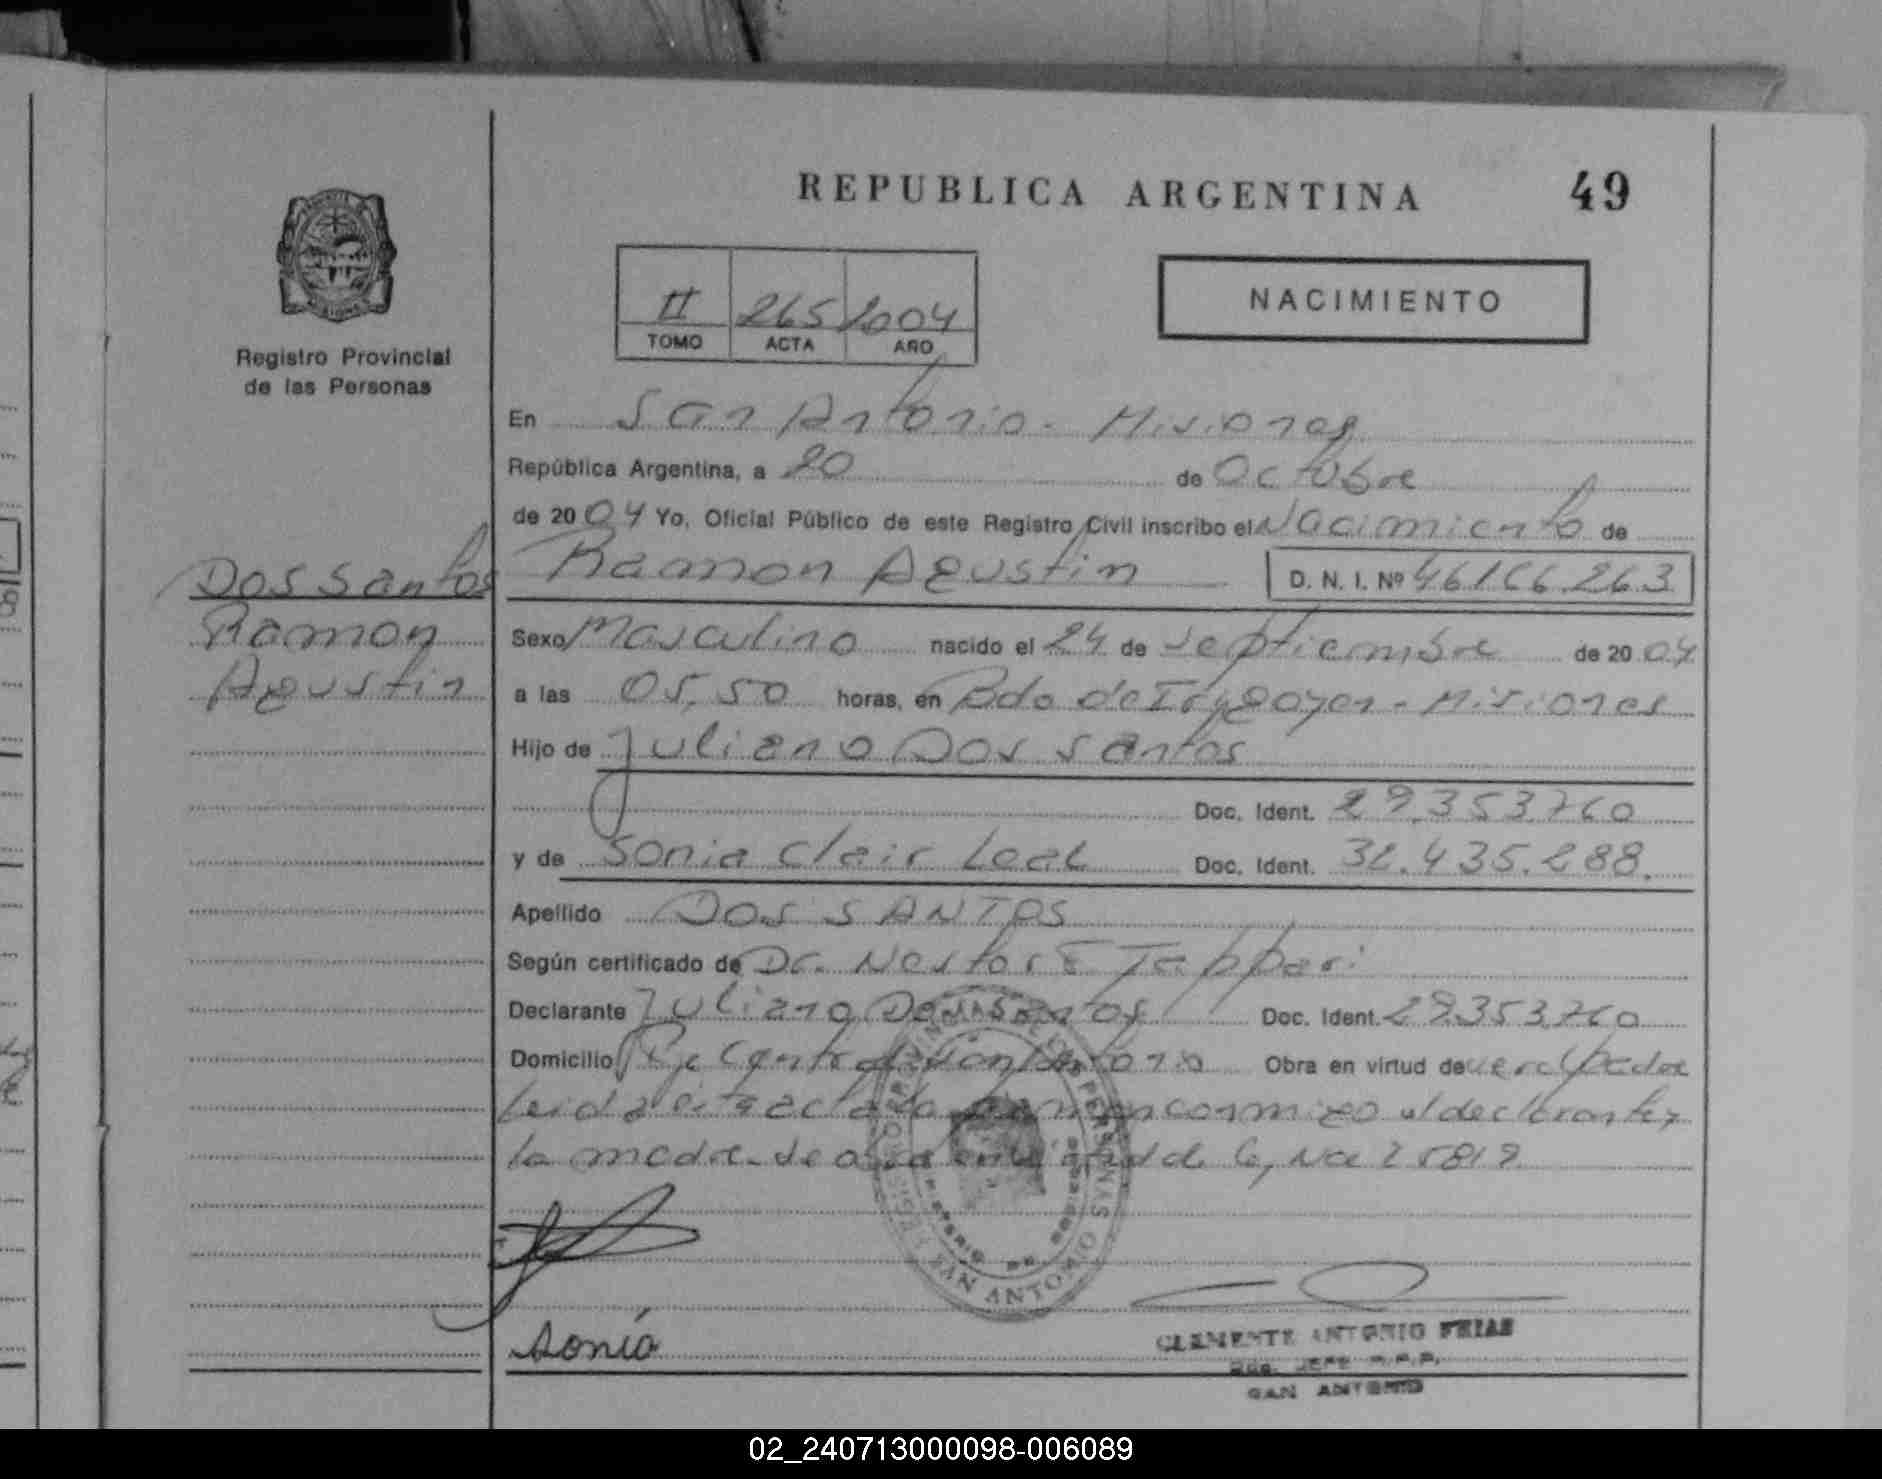 REPUBLICA ARGENTINA 49
Registro Provincial
de las Personas
II 265 2004
TOMO ACTA AÑO
NACIMIENTO
En San Antonio - Misiones
República Argentina, a 20 de Octubre
de 2004 Yo, Oficial Público de este Registro Civil inscribo el Nacimiento de
Dos Santos
Ramon
Agustin
Ramon Agustin D. N. I. Nº 46.166.263
Sexo Masculino nacido el 24 de septiembre de 2004
a las 05,50 horas, en Bdo de Irygoyen - Misiones
Hijo de Juliano Dos Santos
Doc. Ident. 29.353.760
y de Sonia Clair Leal Doc. Ident. 32.435.288.
Apellido DOS SANTOS
Según certificado de Dr. Nestor E Tappari
Declarante Juliano Dos Santos Doc. Ident. 29.353.760
Domicilio Pje Central San Antonio Obra en virtud de ser el padre
leida el acta la firman conmigo el declarante y
la madre. se a en de la
SAN ANTONIO
Sonia
CLEMENTE ANTONIO FRIAS
JEFE R.P.P.
SAN ANTONIO
02_240713000098-006089